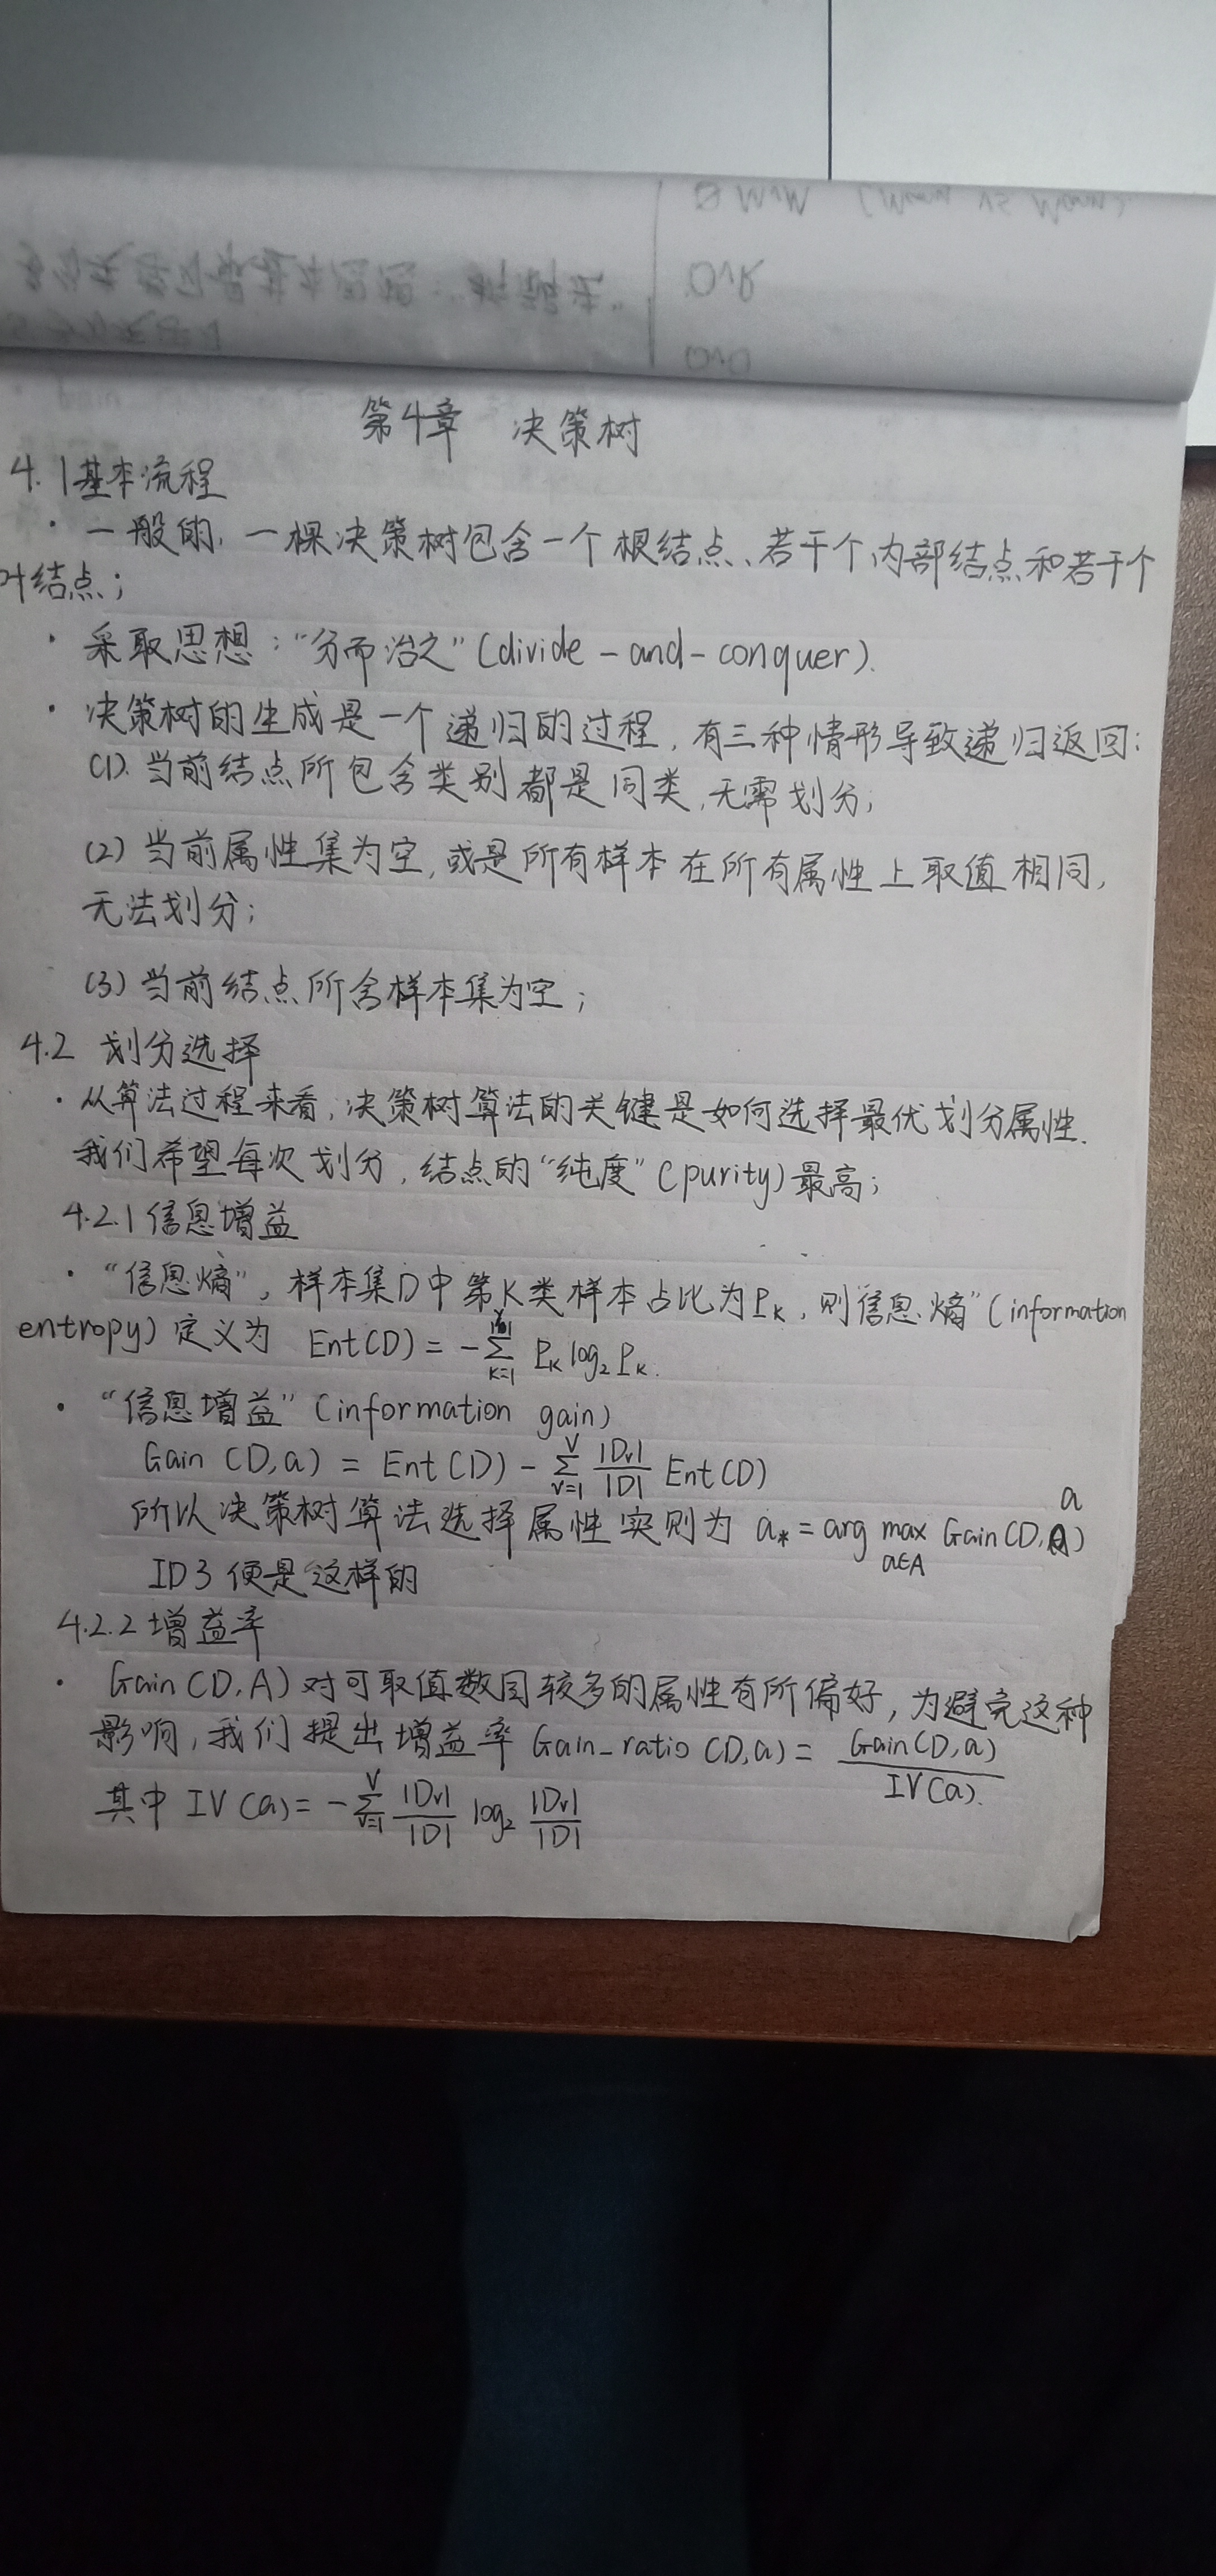 MvM (Many vs Many)
OvR
OvO
第4章 决策树
4.1基本流程
· 一般的, 一棵决策树包含一个根结点、若干个内部结点和若干个
叶结点;
· 采取思想:“分而治之”(divide-and-conquer).
· 决策树的生成是一个递归的过程, 有三种情形导致递归返回:
(1). 当前结点所包含类别都是同类, 无需划分;
(2) 当前属性集为空, 或是所有样本在所有属性上取值相同,
无法划分;
(3) 当前结点所含样本集为空;
4.2 划分选择
· 从算法过程来看, 决策树算法的关键是如何选择最优划分属性.
我们希望每次划分, 结点的“纯度”(purity)最高;
4.2.1 信息增益
· “信息熵”, 样本集D中第K类样本占比为Pk, 则信息熵”(information
entropy) 定义为 Ent(D) = -∑_{k=1}^{|y|} Pk log₂ Pk.
· “信息增益”(information gain)
Gain (D,a) = Ent(D) - ∑_{v=1}^{V} |Dv|/|D| Ent(D)
所以决策树算法选择属性实则为 a* = arg max_{a∈A} Gain(D, a)
ID3 便是这样的
4.2.2 增益率
· Gain(D,A) 对可取值数目较多的属性有所偏好, 为避完这种
影响, 我们提出增益率 Gain_ratio (D,a) = Gain(D,a)/IV(a).
其中 IV(a) = -∑_{v=1}^{V} |Dv|/|D| log₂ |Dv|/|D|